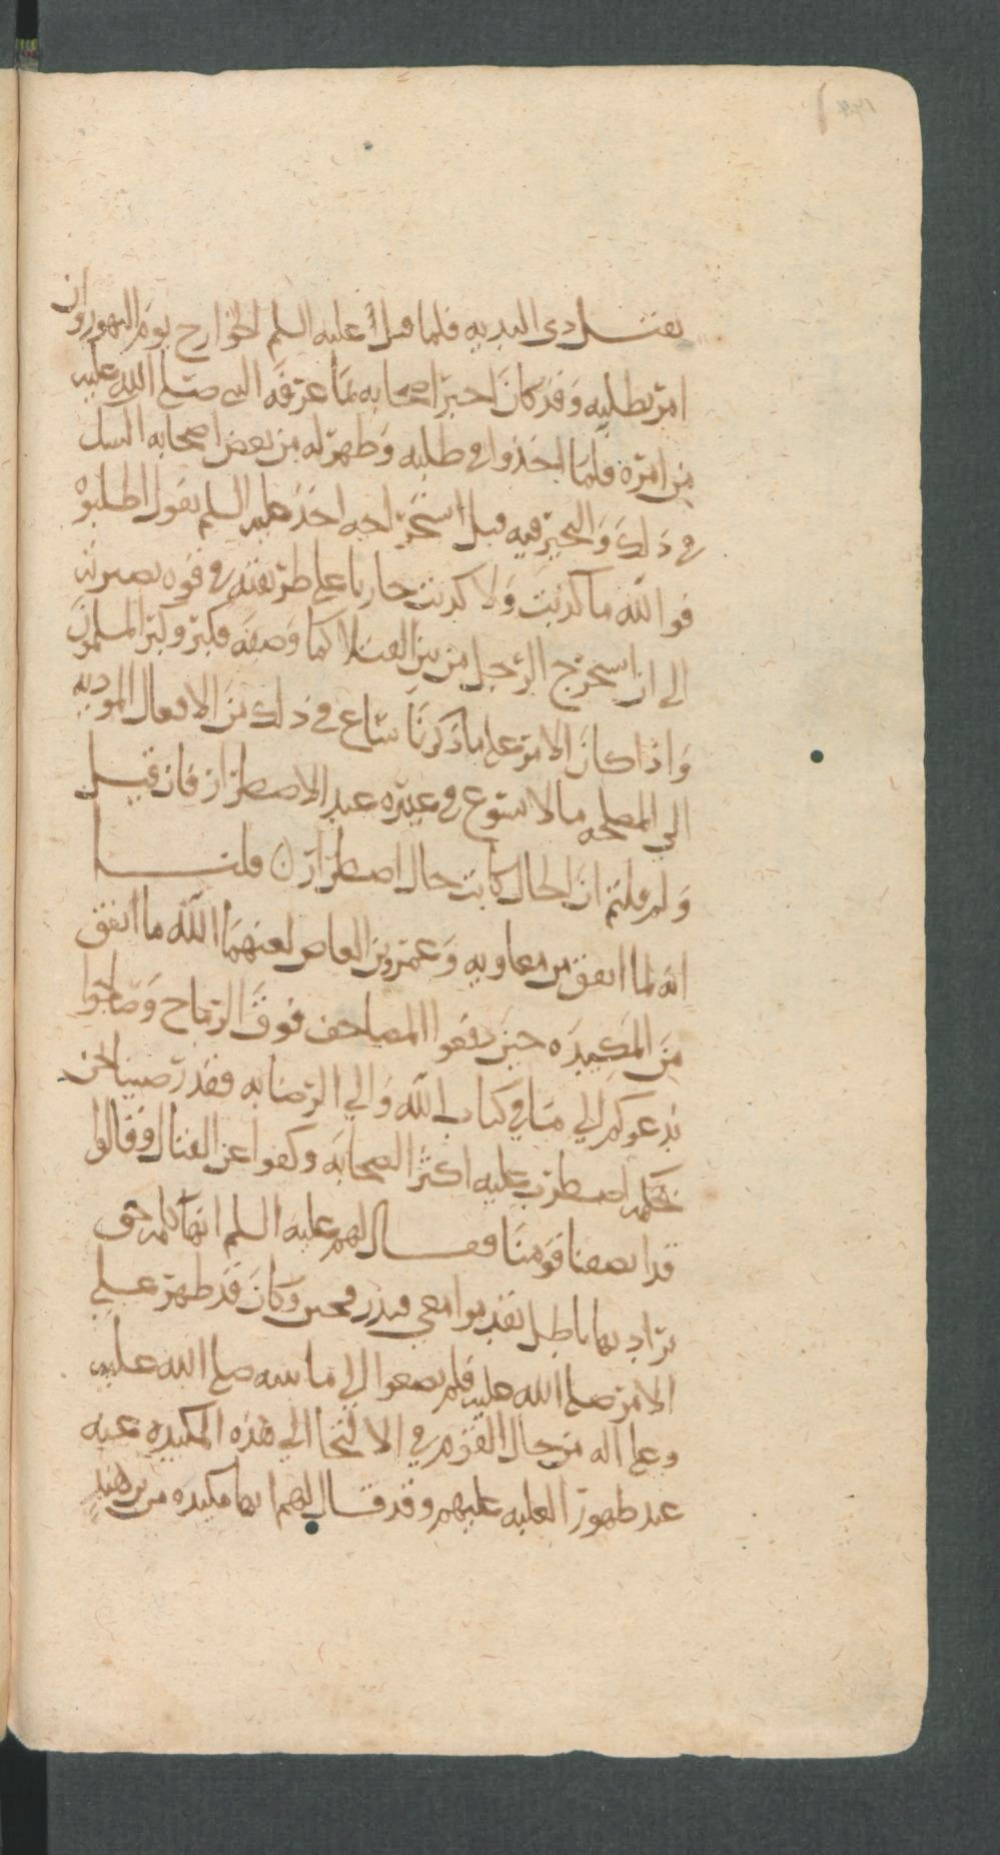 بقتل ذي الثدية فلما قتل عليه السلم الخوارج يوم النهروان
امر بطلبه وقد كان اخبر اصحابه بما عرفه النبي صلى الله عليه
من امره فلما اخذوا في طلبه وظهر له من بعض اصحابه الشك
في ذلك والتحير فيه قبل استخراجه اخذ عليه السلم يقول اطلبوه
فوالله ما كذبت ولا كذبت جاريا على طريقته في قوة بصيرته
الى ان استخرج الرجل من بين القتلا كما وصفه فكبر وكبر المسلمون
واذا كان الامر على ما ذكرنا ساغ في ذلك من الافعال المودية
الى المصلحة ما لا يسوغ في غيره عند الاضطرار فان قيل
ولم قلتم ان الحال كانت حال اضطرار قلنا
انه لما اتفق من معاوية وعمرو بن العاص لعنهما الله ما اتفق
من المكيدة حين رفعوا المصاحف فوق الرماح وصاحوا
ندعوكم الى ما في كتاب الله والى الرضا به فقد رضينا
اضطرب عليه اكثر الصحابة وكفوا عن القتال وقالوا
قد انصفنا قومنا فقال لهم عليه السلم انها كلمة حق
يراد بها باطل وكان قد ظهر على
الامر صلى الله عليه فلم يصغوا الى ما صلى الله عليه
وعلى اله من حال القوم في الالتجا الى هذه المكيدة
عند ظهور الغلبة عليهم وقد قال لهم انها مكيدة من بن هند